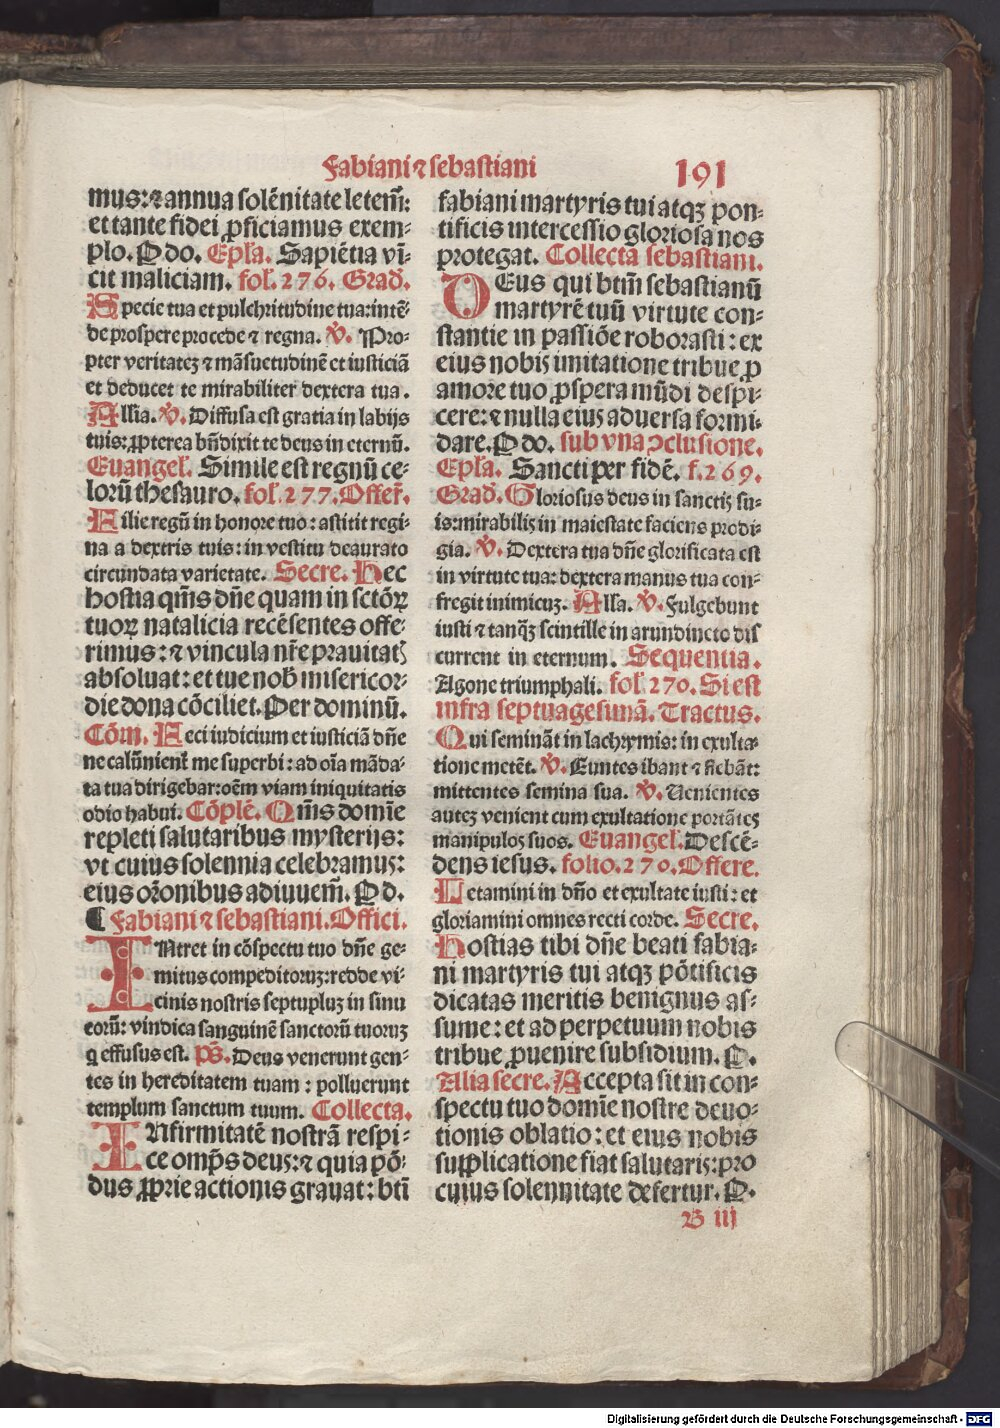 Fabiani ⁊ sebastiani
191
mus:⁊ annua solēnitate letem̄:
et tante fidei ꝓficiamus exem-
plo. P do. Epl'a. Sapiētia vī-
cit maliciam. fol'. 276. Grad'.
Specie tua et pulchritudine tua:intē-
de prospere procede ⁊ regna. ℣. Pro-
pter veritatēꝫ ⁊ māsuetudinē et iusticiā
et deducet te mirabiliter dextera tua.
All'ia. ℣. Diffusa est gratia in labijs
tuis:ꝓpterea bn̄dixit te deus in eternū.
Euangel'. Simile est regnū ce-
lorū thesauro. fol'. 277. Offer̄.
Filie regū in honore tuo: astitit regi-
na a dextris tuis: in vestitu deaurato
circundata varietate. Secre. Hec
hostia qm̄s dn̄e quam in sctōꝝ
tuoꝝ natalicia recēsentes offe-
rimus:⁊ vincula nr̄e prauitatꝭ
absoluat:et tue nob̄ misericor-
die dona cōciliet. Per dominū.
Cōm. Feci iudicium et iusticiā dn̄e
ne calūnient̄ me superbi: ad oīa māda-
ta tua dirigebar:oēm viam iniquitatis
odio habui. Cōplē. Qm̄s domīe
repleti salutaribus mysterijs:
vt cuius solennia celebramus:
eius or̄onibus adiuuem̄. P d.
¶ Fabiani ⁊ sebastiani. Offici.
INtret in cōspectu tuo dn̄e ge-
mitus compeditoruꝫ:redde vi-
cinis nostris septupluꝫ in sinu
eorū: vindica sanguinē sanctorū tuoruꝫ
q effusus est. p̄s. Deus venerunt gen-
tes in hereditatem tuam: polluerunt
templum sanctum tuum. Collecta.
INfirmitatē nostrā respi-
ce omp̄s deus:⁊ quia pō-
dus ꝓprie actionis grauat: btī
fabiani martyris tui atqꝫ pon-
tificis intercessio gloriosa nos
protegat. Collecta sebastiani.
DEus qui btm̄ sebastianū
martyrē tuū virtute con-
stantie in passiōe roborasti: ex
eius nobis imitatione tribue ꝓ
amore tuo ꝓspera mūdi despi-
cere:⁊ nulla eius aduersa formi-
dare. P do. sub vna ꝯclusione.
Epl'a. Sancti per fidē. f. 269.
Grad'. Gloriosus deus in sanctis su-
is:mirabilis in maiestate faciens prodi-
gia. ℣. Dextera tua dn̄e glorificata est
in virtute tua: dextera manus tua con-
fregit inimicuꝫ. All'a. ℣. Fulgebunt
iusti ⁊ tanqꝫ̄ scintille in arundineto dis
current in eternum. Sequentia.
Agone triumphali. fol'. 270. Si est
infra septuagesimā. Tractus.
Qui semināt in lachrymis: in exulta-
tione metēt. ℣. Euntes ibant ⁊ flebāt:
mittentes semina sua. ℣. Uenientes
auteꝫ venient cum exultatione portāteꝫ
manipulos suos. Euangel'. Descē-
dens iesus. folio. 270. Offere.
Letamini in dn̄o et exultate iusti: et
gloriamini omnes recti corde. Secre.
Hostias tibi dn̄e beati fabia-
ni martyris tui atqꝫ pōtificis
dicatas meritis benignus as-
sume: et ad perpetuum nobis
tribue ꝓuenire subsidium. P.
Alia secre. Accepta sit in con-
spectu tuo domīe nostre deuo-
tionis oblatio: et eius nobis
supplicatione fiat salutaris:pro
cuius solennitate defertur. P.
B iij
Digitalisierung gefördert durch die Deutsche Forschungsgemeinschaft - DFG